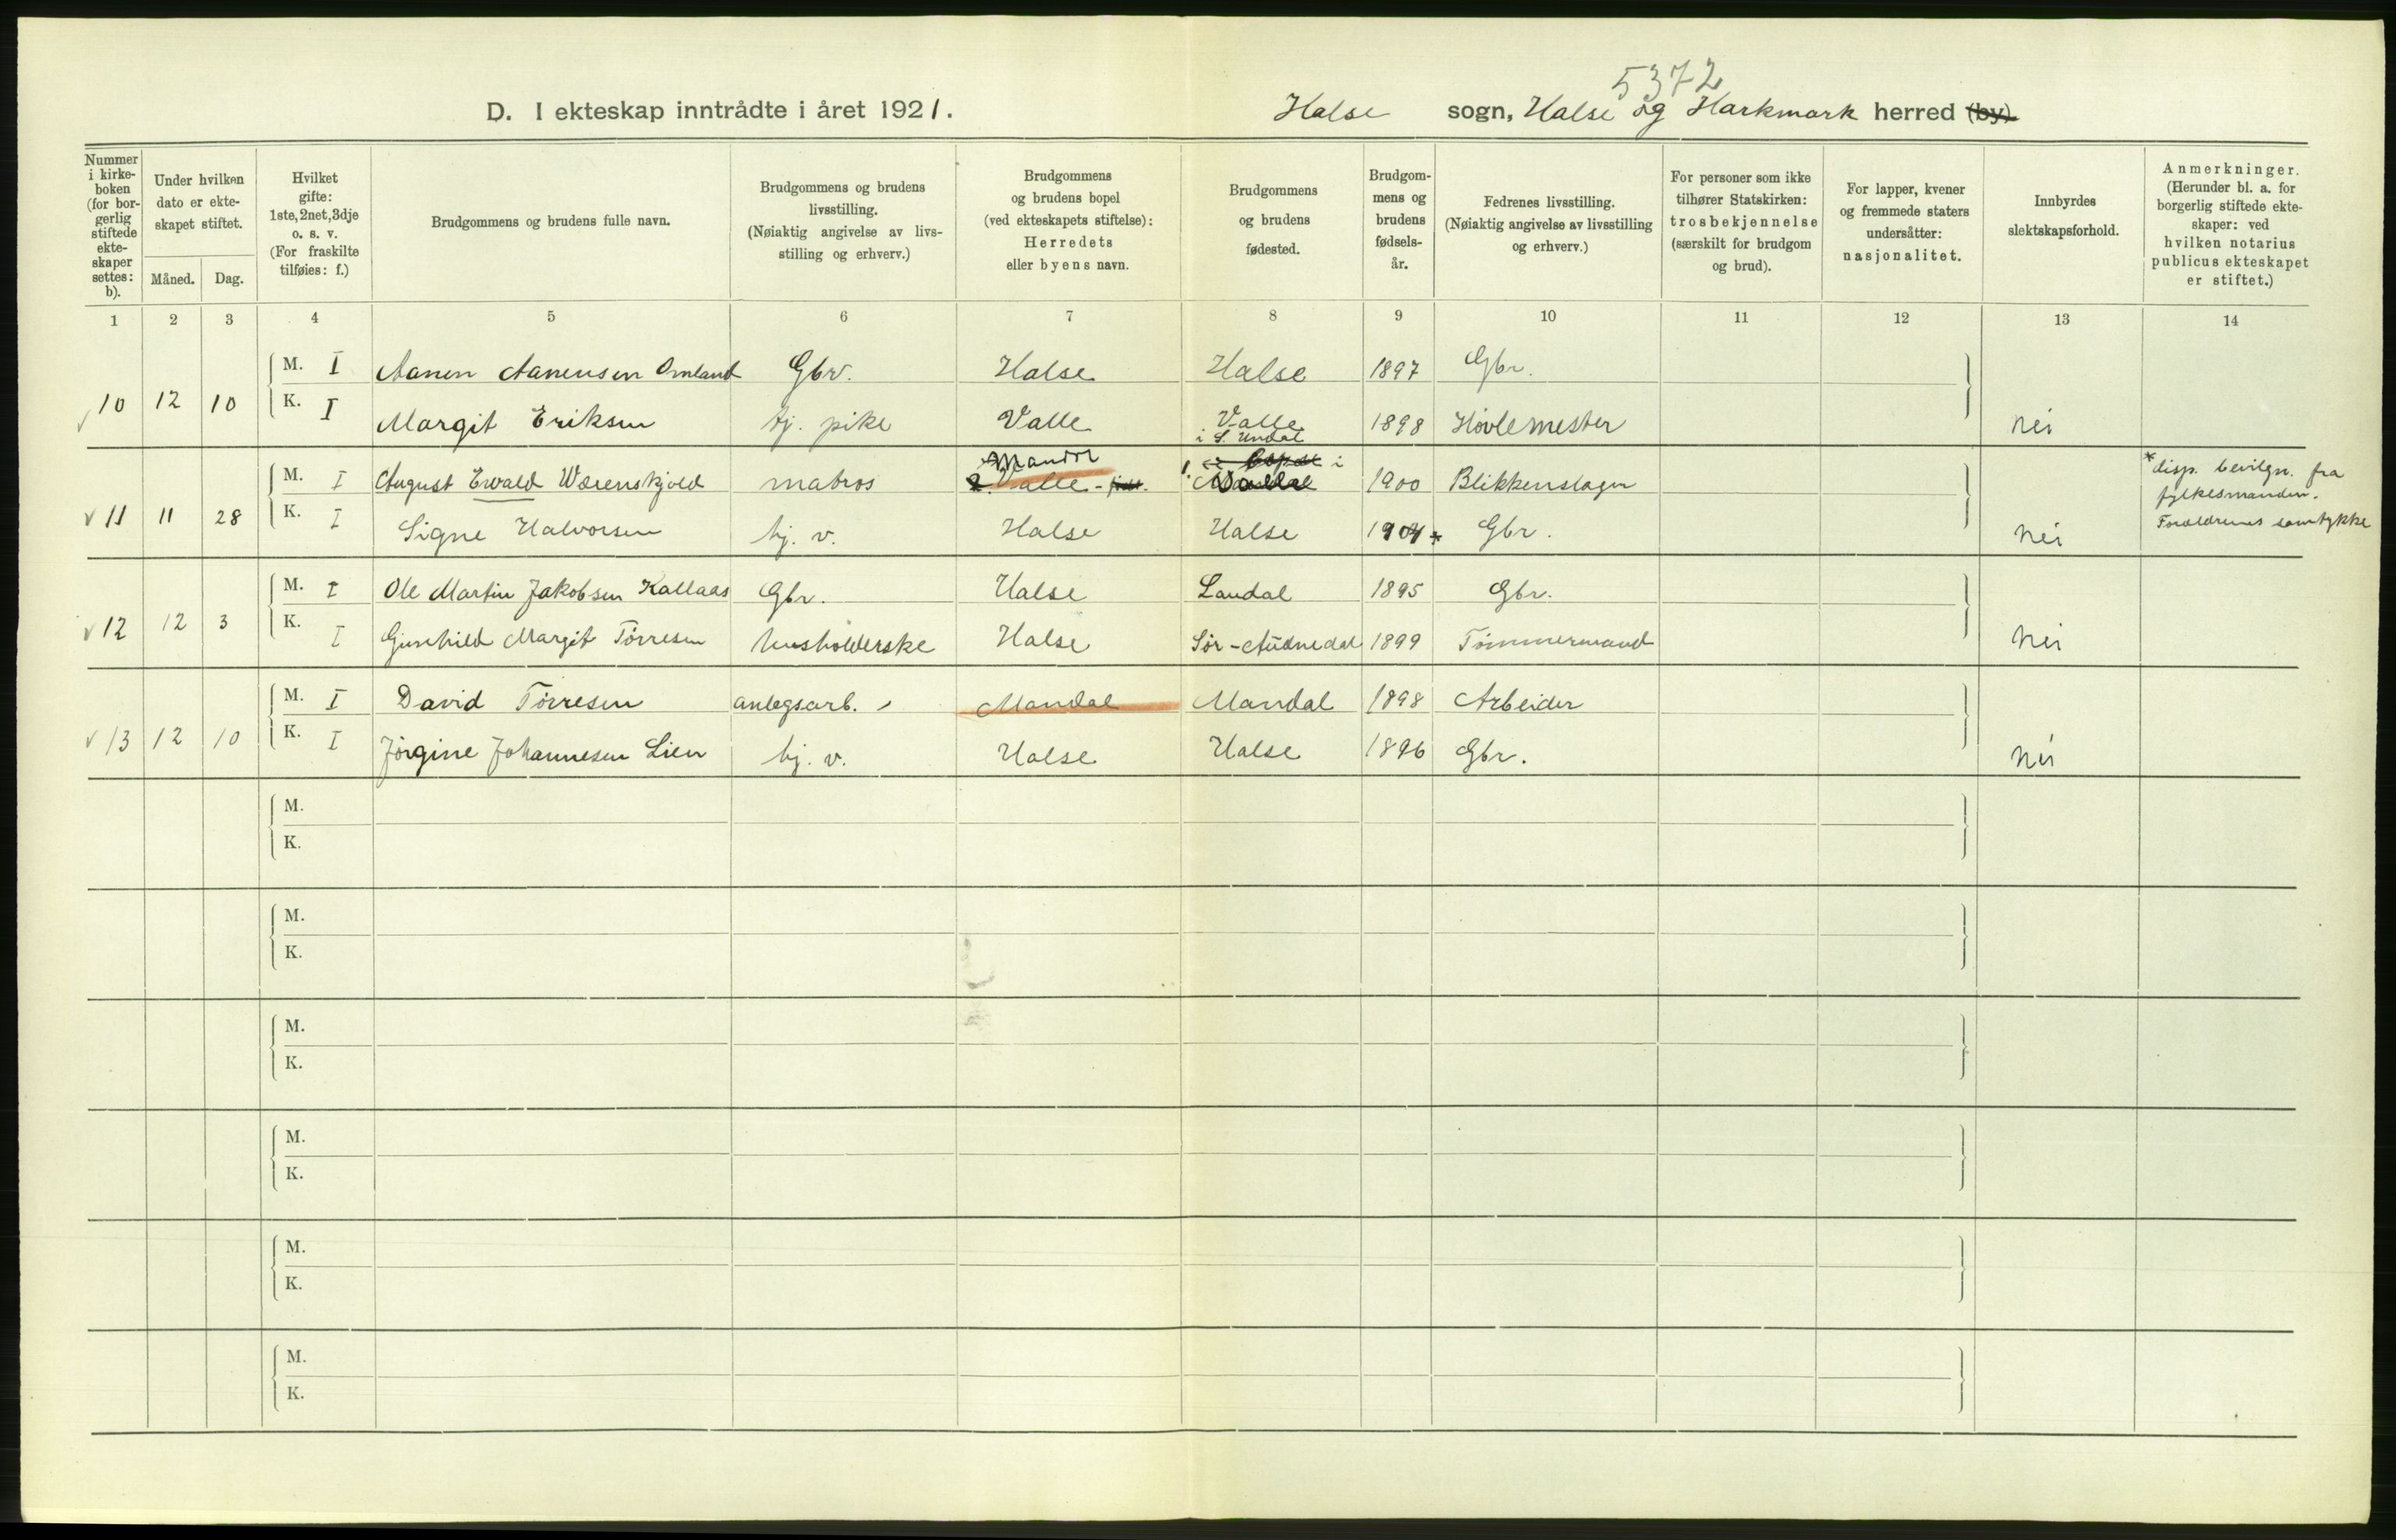 5372
D. I ekteskap inntrådte i året 1921. Halse sogn, Halse og Harkmark herred (by).
Nummer i kirke-boken (for bor-gerlig stiftede ekte-skaper settes: b).
Under hvilken dato er ekte-skapet stiftet.
Måned. Dag.
Hvilket gifte: 1ste, 2net, 3dje o. s. v. (For fraskilte tilføies: f.)
Brudgommens og brudens fulle navn.
Brudgommens og brudens livsstilling. (Nøiaktig angivelse av livs-stilling og erhverv.)
Brudgommens og brudens bopel (ved ekteskapets stiftelse): Herredets eller byens navn.
Brudgommens og brudens fødested.
Brudgom-mens og brudens fødsels-år.
Fedrenes livsstilling. (Nøiaktig angivelse av livsstilling og erhverv.)
For personer som ikke tilhører Statskirken: trosbekjennelse (særskilt for brudgom og brud).
For lapper, kvener og fremmede staters undersåtter: nasjonalitet.
Innbyrdes slektskapsforhold.
Anmerkninger. (Herunder bl. a. for borgerlig stiftede ekte-skaper: ved hvilken notarius publicus ekteskapet er stiftet.)
1 2 3 4 5 6 7 8 9 10 11 12 13 14
M. I Aanen Aanensen Omland Gbr. Halse Halse 1897 Gbr.
10 12 10 K. I Margit Eriksen tj. pike Valle Valle i S. Undal 1898 Høvlemester nei
M. I August Ewald Wærenskjold matros Mandal Valle 1900 Blikkenslager
11 11 28 K. I Signe Halvorsen hj. v. Halse Halse 1904 * Gbr. nei
* disp. bevilgn. fra
fylkesmanden.
Forældrenes samtykke
M. I Ole Martin Jakobsen Kallaas Gbr. Halse Laudal 1895 Gbr.
12 12 3 K. I Gunhild Margit Tørresen husholderske Halse Sør-Audnedal 1899 Tømmermand nei
M. I David Tørresen anlegsarb. Mandal Mandal 1898 Arbeider
13 12 10 K. I Jørgine Johannesen Lien hj. v. Halse Halse 1896 Gbr. nei
M.
K.
M.
K.
M.
K.
M.
K.
M.
K.
M.
K.